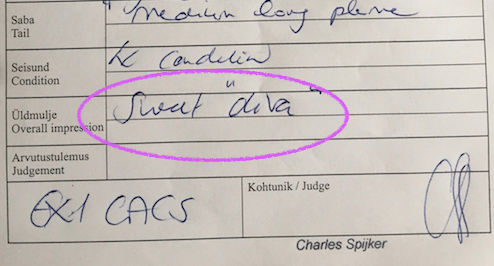 Saba
Tail
medium long plume
Seisund
Condition
condition
Üldmulje
Overall impression
Sweet "diva"
Arvutustulemus
Judgement
EX1 CACS
Kohtunik / Judge
Charles Spijker